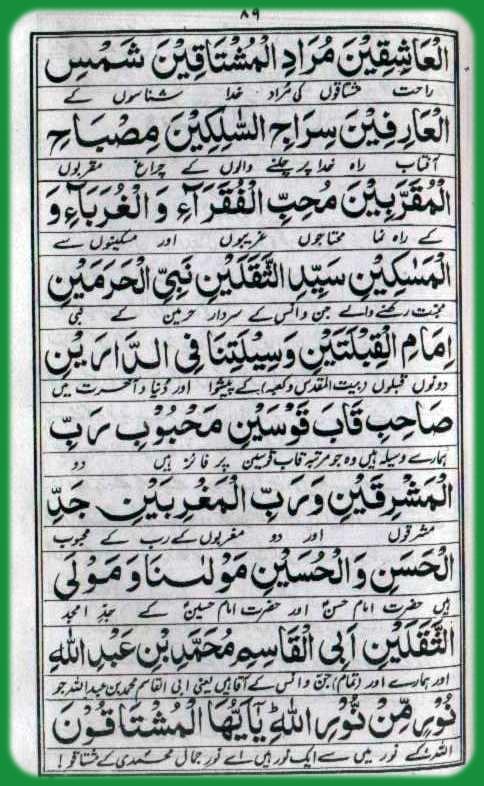 ۸۹
الْعَاشِقِيْنَ مُرَادِ الْمُشْتَاقِيْنَ شَمْسِ
راحت مشتاقوں کی مُراد خدا شناسوں کے
الْعَارِفِيْنَ سِرَاجِ السّٰلِكِيْنَ مِصْبَاحِ
آفتاب راہ خدا پر چلنے والوں کے چراغ مقربوں
الْمُقَرَّبِيْنَ مُحِبِّ الْفُقَرَآءِ وَ الْغُرَبَآءِ وَ
کے راہ نما محتاجوں غریبوں اور مسکینوں سے
الْمَسٰكِيْنِ سَيِّدِ الثَّقَلَيْنِ نَبِيِّ الْحَرَمَيْنِ
محبت رکھنے والے جن و انس کے سردار حرمین کے نبی
اِمَامِ الْقِبْلَتَيْنِ وَسِيْلَتِنَا فِي الدَّارَيْنِ
دونوں قبلوں (بیت المقدس و کعبہ) کے پیشوا اور دُنیا و آخرت میں
صَاحِبِ قَابَ قَوْسَيْنِ مَحْبُوْبِ رَبِّ
ہمارے وسیلہ ہیں وہ جو مرتبہ قاب قوسین پر فائز ہیں دو
الْمَشْرِقَيْنِ وَرَبِّ الْمَغْرِبَيْنِ جَدِّ
مشرقوں اور دو مغربوں کے رب کے محبوب
الْحَسَنِ وَالْحُسَيْنِ مَوْلٰىنَا وَ مَوْلَى
ہیں حضرت امام حسنؓ اور حضرت امام حسینؓ کے جدِّ امجد
الثَّقَلَيْنِ اَبِي الْقَاسِمِ مُحَمَّدِ بْنِ عَبْدِ اللّٰهِ
اور ہمارے اور (تمام) جن و انس کے آقا ہیں یعنی ابی القاسم محمد بن عبداللہ جو
نُوْرٍ مِّنْ نُّوْرِ اللّٰهِ يٰٓاَيُّهَا الْمُشْتَاقُوْنَ
اللہ کے نور میں سے ایک نور ہیں اے نورِ جمالِ محمدی کے مشتاقو!